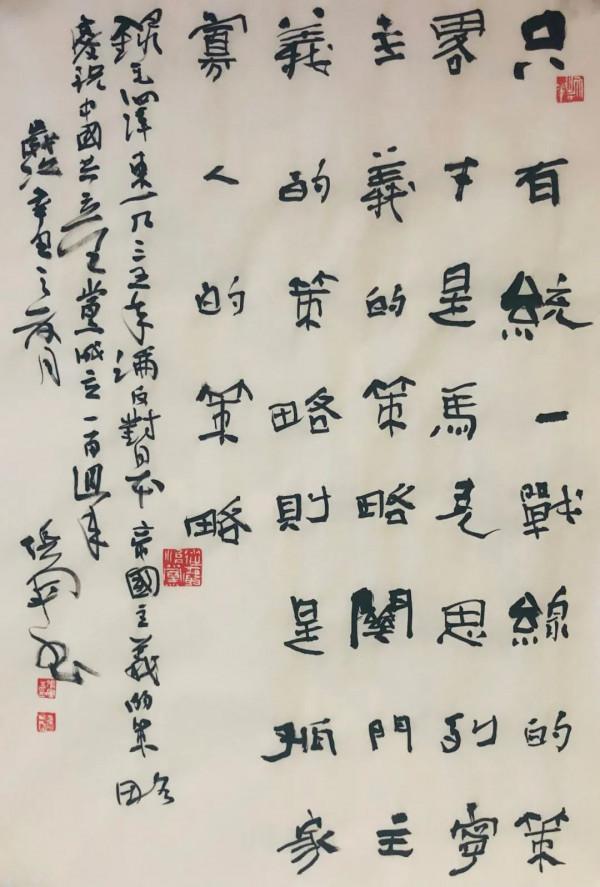 只有統一戰線的策
畧才是馬克思列寧
主義的策略關門主
義的策略則是孤家
寡人的策略
錄毛澤東一九三五年論反對日本帝國主義的策略
慶祝中國共產黨成立一百週年
歲辛丑之夏月